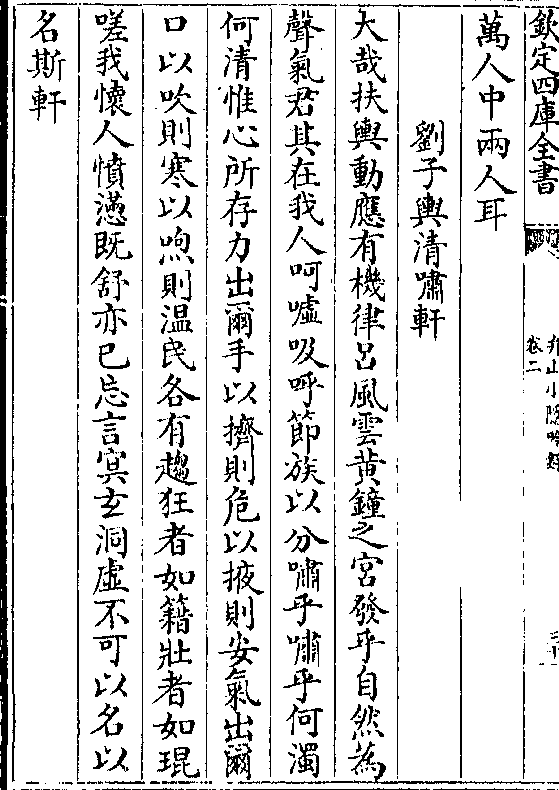 欽定四庫全書
卷二
萬人中兩人耳
劉子輿清嘯軒
大哉扶輿動應有機律呂風雲黃鐘之宮發乎自然為
聲氣君其在我人呵噓吸呼節族以分嘯乎嘯乎何濁
何清惟心所存力出爾手以擠則危以掖則安氣出爾
口以吹則寒以呴則温民各有趨狂者如籍壯者如琨
嗟我懷人憤懣既舒亦已忘言冥玄洞虛不可以名以
名斯軒